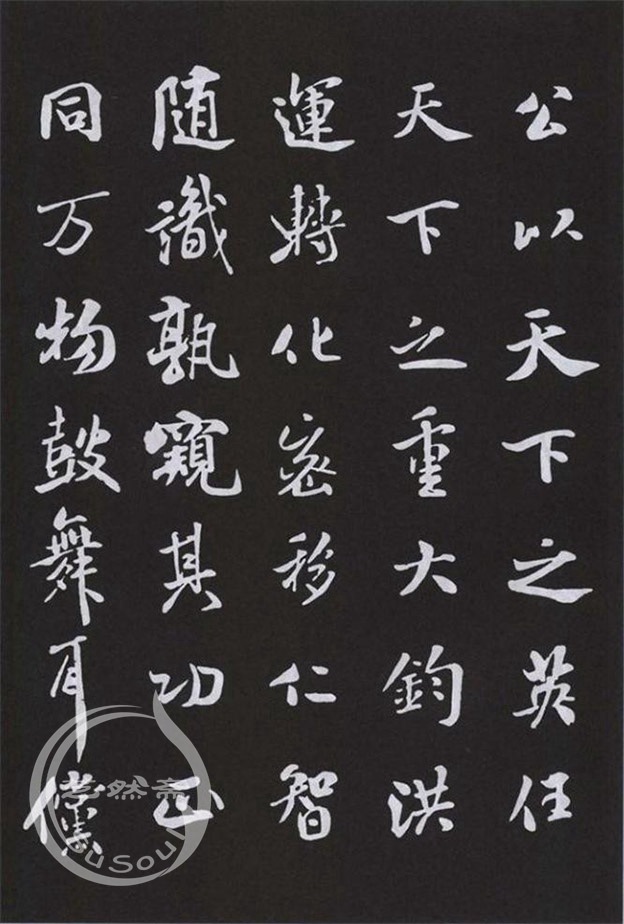 公以天下之英任
天下之重大鈞洪
運轉化密移仁智
随識孰窺其功正
同万物鼓舞耳儻
然斋